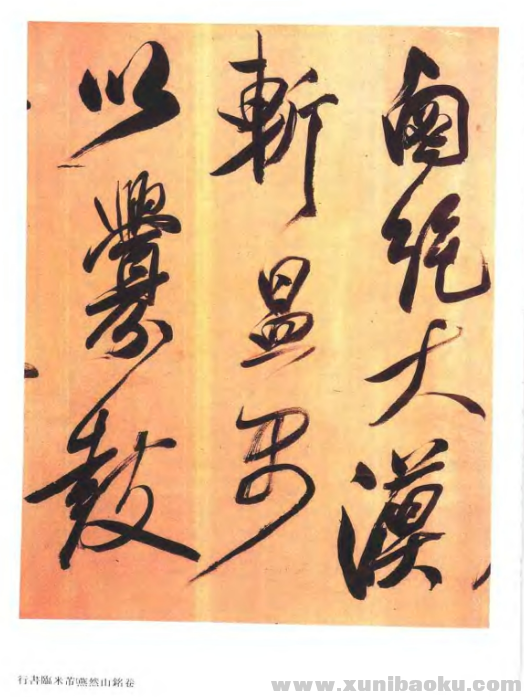 卤絕大漠
斬温禺
以釁鼓
行書臨米芾燕然山銘卷
www.xunibaoku.com